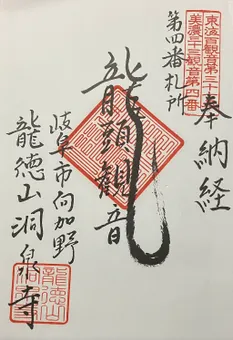 東海百観音第三十
美濃三十三観音第四番
奉納経
第四番札所
龍頭観音
岐阜市向加野
龍徳山洞泉寺
龍徳山